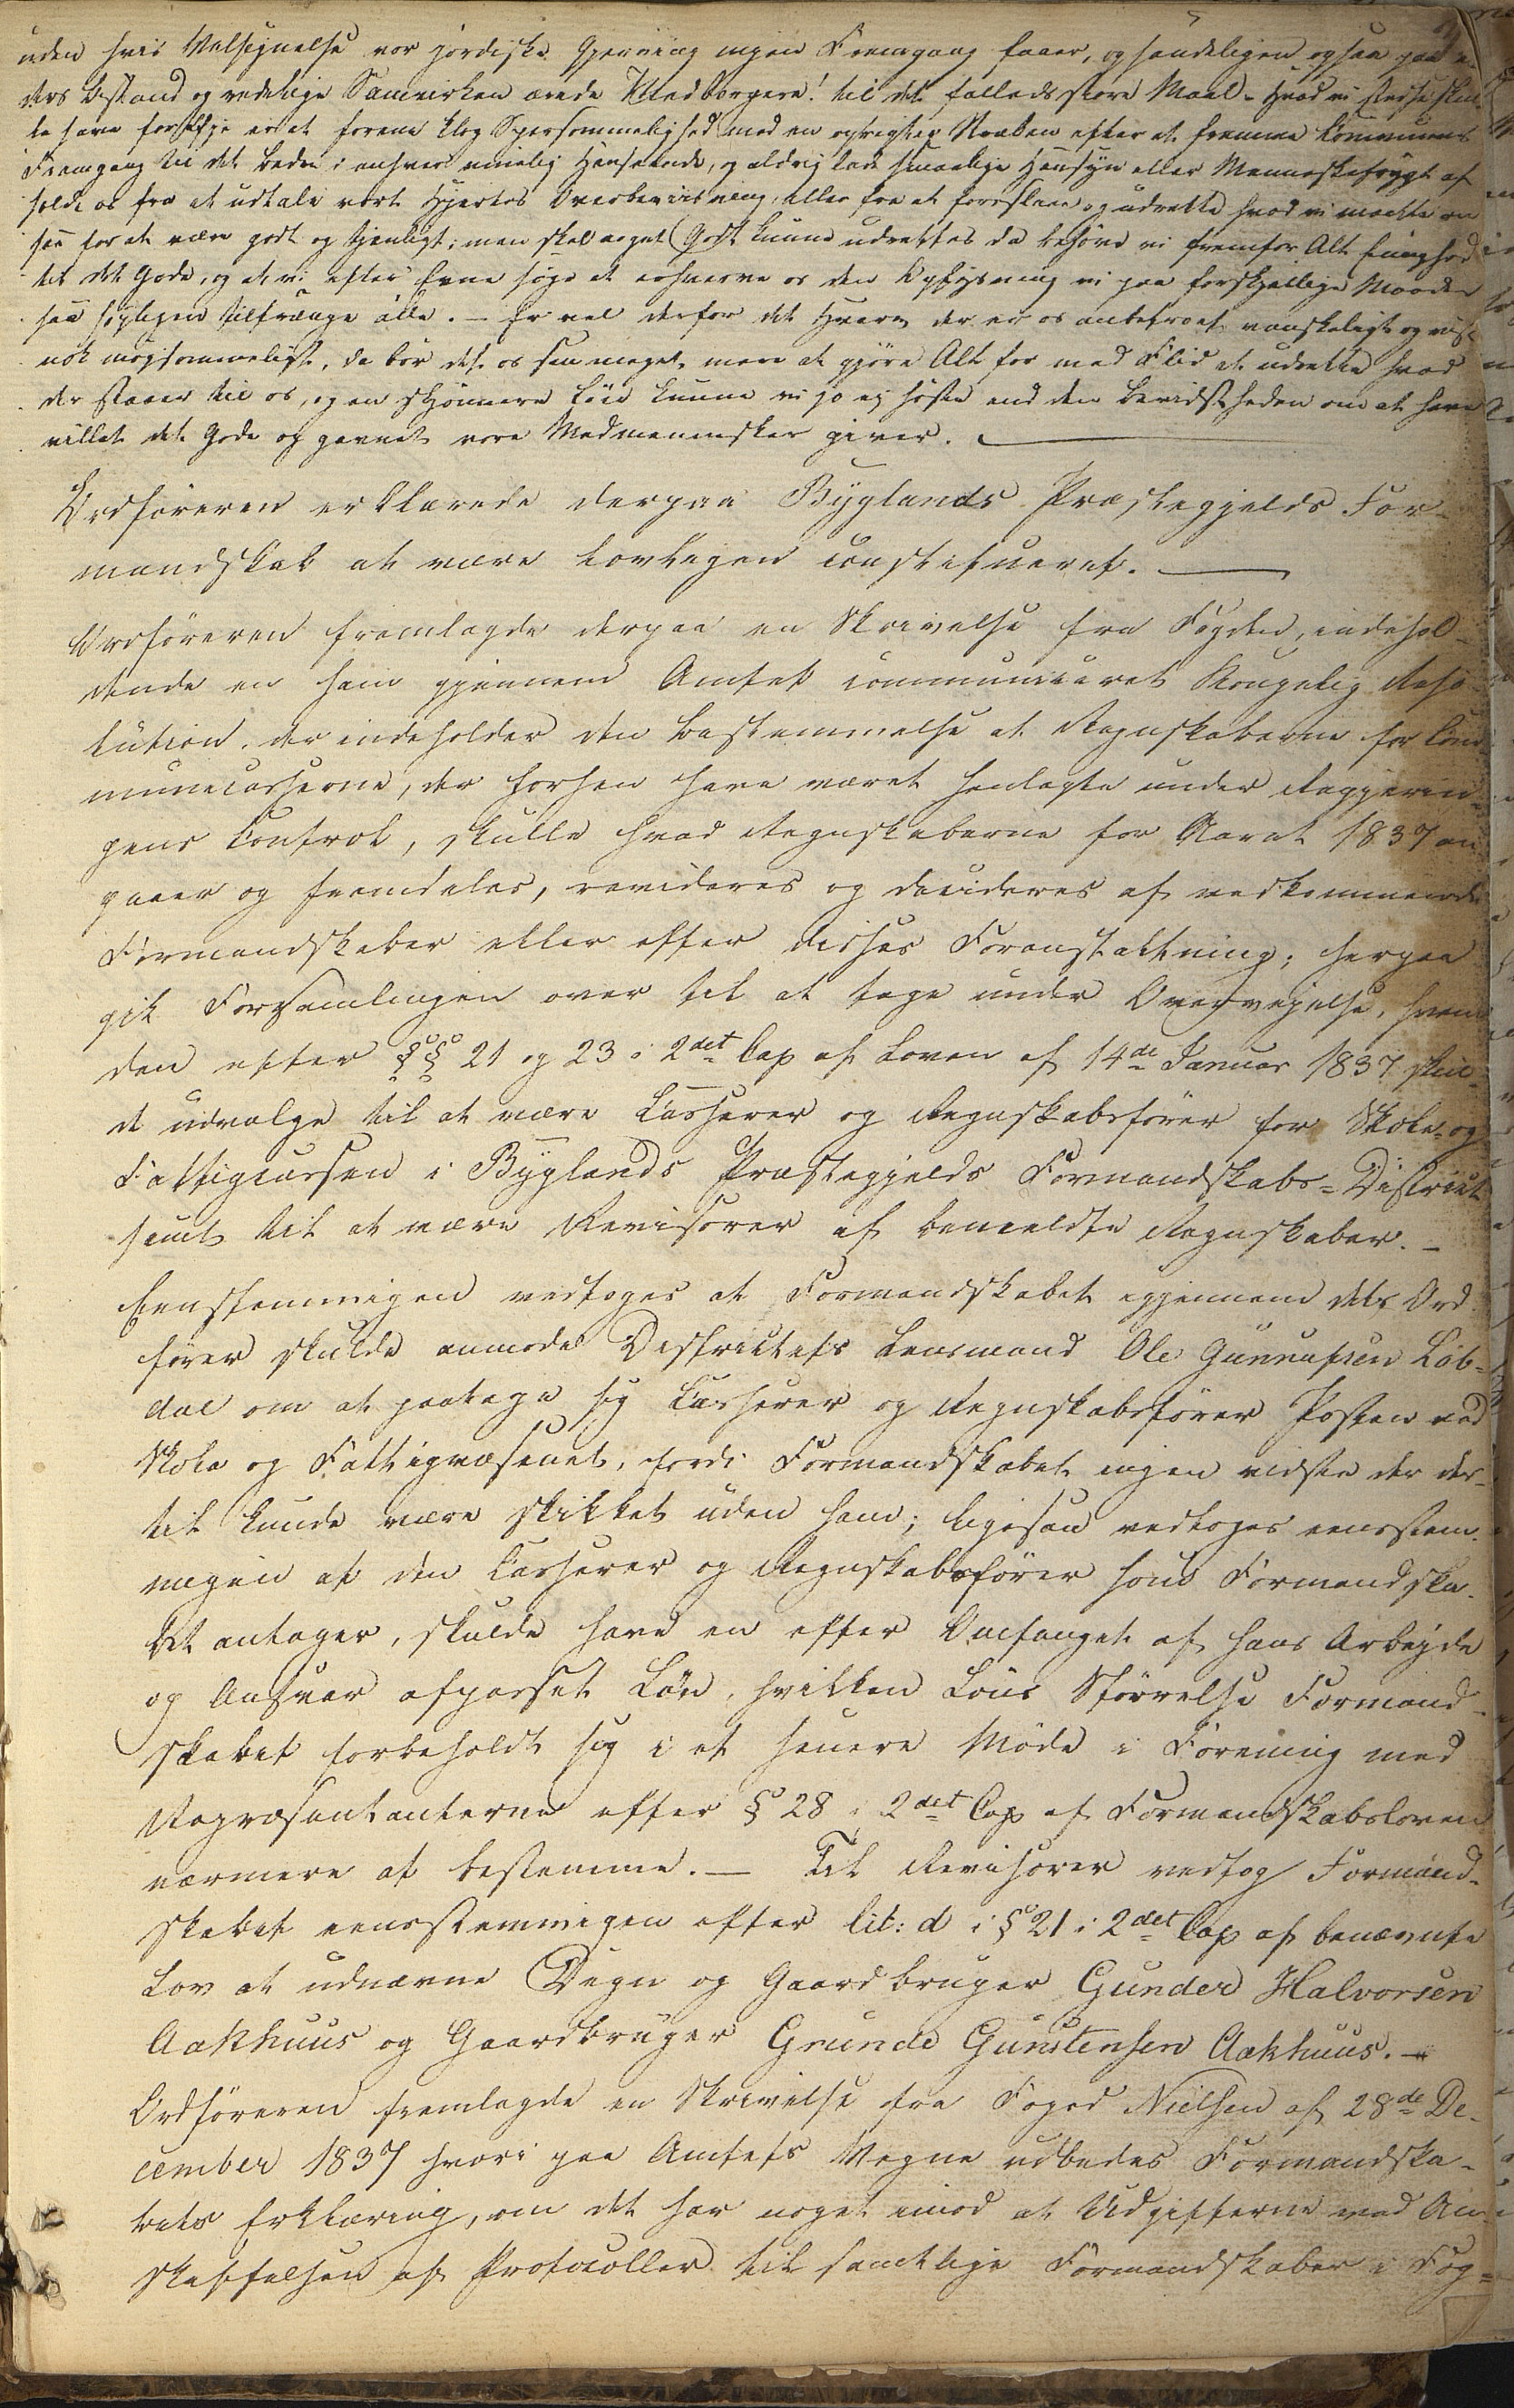 uden hvis Velsignelse vor jordiske Gjerning ingen Fremgang faaer, og sandeligen ogsaa paa e-
ders Bistand og redelige Samvirken ærede Medborgere! til det fælleds store Maal. Hvad vi stedse skul-
le have for Øje er at forene klog Sparsommelighed med en oprigtig Stræben efter at fremme Communens
Fremgang til det bedre i enhver muelig Henseende, og aldrig lade smaalige Hensyn eller Menneskefrygt af-
holde os fra at udtale vort Hjertes Overbeviisning, eller fra at foreslaae og udrette hvad vi maatte an-
see for at være godt og tjenligt; men skal noget Godt kunne udrettes da behøve vi fremfor Alt Enighed
til det Gode, og at vi efter Evne søge at erhverve os den Oplysning vi paa forskjellige Maader
saa høyligen tiltrænge alle. – Er vel derfor det Hverv der er os anbetroet vanskeligt og vist-
nok møjsommeligt, da bør det os saa meget mere at gjøre Alt for med Flid at udrette hvad
der staaer til os, og en skjönnere Lön kunne vi jo ej höste end den Bevidstheden om at have
villet det Gode og gavnet vore Medmennesker giver. –
Ordføreren erklærede derpaa Byglands Præstegjelds For-
mandskab at være lovligen constitueret. –
Ordføreren fremlagde derpaa en Skrivelse fra Fogden, indehol-
dende en ham gjennem Amtet communiceret Kongelig Reso-
lution, der indeholder den Bestemmelse at Regnskaberne for Com-
munecasserne, der forhen have været henlagte under Regjerin-
gens Control, skulle hvad Regnskaberne for Aaret 1837 an-
gaaer og fremdeles, revideres og decideres af vedkommende
Formandskaber eller efter disses Foranstaltning; herpaa
gik Forsamlingen over til at tage under Overvejelse, hvem
den efter §§ 21 og 23 i 2det Cap af Loven af 14de Januar 1837 skul-
de udvælge til at være Casserer og Regnskabsfører for Skole- og
Fattigcassen i Byglands Præstegjelds Formandskabs-District
samt til at være Revisorer af bemeldte Regnskaber. –
Eenstemmigen vedtoges at Formandskabet igjennem dets Ord-
fører skulde anmode Districtets Lensmand Ole Gunnufsen Lob-
dal om at paatage sig Casserer og Regnskabsfører Posten ved
Skole og Fattigvæsenet, fordi Formandskabet ingen vidste der der-
til kunde være skikket uden ham; ligesaa vedtoges eenstem-
migen at den Casserer og Regnskabsfører som Formandska-
bet antager, skulde have en efter Omfanget af hans Arbejde
og Ansvar afpasset Løn, hvilken Løns Størrelse Formand-
skabet forbeholdt sig i et senere Møde i Forening med
Repræsentanterne efter § 28 i 2det Cap af Formandskabsloven
nærmere at bestemme. – Til Revisorer vedtog Formand-
skabet eenstemmigen efter lit: d i § 21 i 2det Cap af benævnte
Lov at udnævne Degn og Gaardbruger Gunder Halvorsen
Aakhuus og Gaardbruger Grunde Gunstensen Aakhuus. –
Ordføreren fremlagde en Skrivelse fra Foged Nielsen af 28de De-
cember 1837 hvori paa Amtets Vegne udbedes Formandska-
bets Erklæring, om det har noget imod at Udgifterne ved An-
skaffelsen af Protocoller til samtlige Formandskaber i Fog-